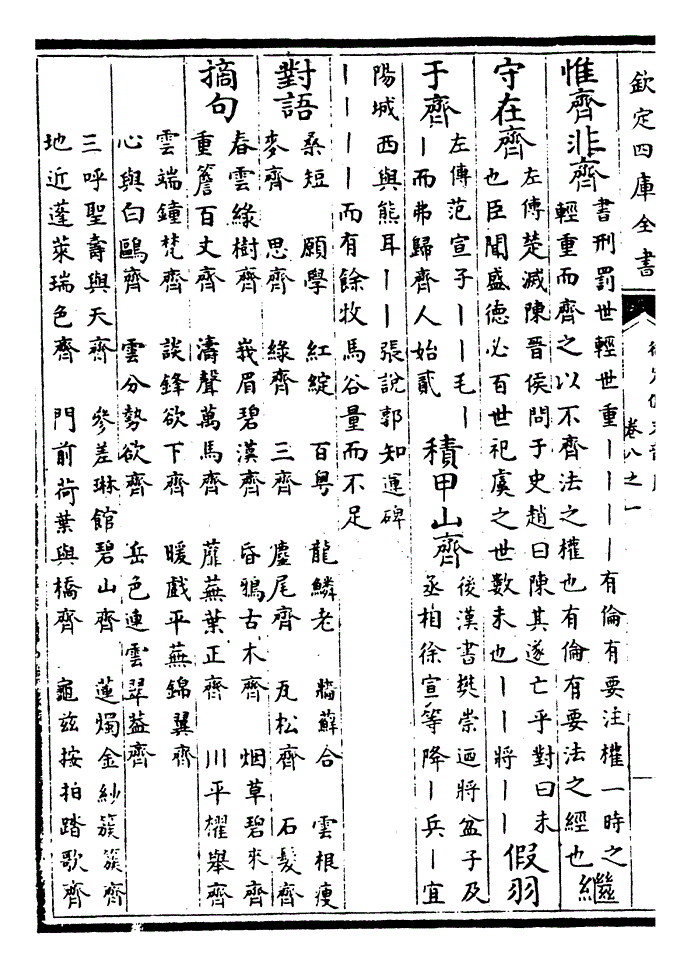 欽定四庫全書
卷八之一
惟齊非齊
書刑罰世輕世重丨丨丨丨有倫有要注權一時之
輕重而齊之以不齊法之權也有倫有要法之經也
繼
守在齊
左傳楚滅陳晉侯問于史趙曰陳其遂亡乎對曰未
也臣聞盛德必百世祀虞之世數未也丨丨將丨丨
假羽
于齊
左傳范宣子丨丨毛丨
丨而弗歸齊人始貳
積甲山齊
後漢書樊崇迺將盆子及
丞相徐宣等降丨兵丨宜
陽城西與熊耳丨丨張說郭知運碑
丨丨丨丨而有餘牧馬谷量而不足
對語
桑短 願學 紅綻 百粤 龍鱗老 牆蘇合 雲根瘦
麥齊 思齊 綠齊 三齊 麈尾齊 瓦松齊 石髮齊
摘句
春雲綠樹齊 峩眉碧漢齊 昏鴉古木齊 烟草碧來齊
重簷百丈齊 濤聲萬馬齊 蘼蕪葉正齊 川平櫂舉齊
雲端鐘梵齊 談鋒欲下齊 暖戲平蕪錦翼齊
心與白鷗齊 雲分勢欲齊 岳色連雲翠益齊
三呼聖壽與天齊 參差琳館碧山齊 蓮燭金紗簇簇齊
地近蓬萊瑞色齊 門前荷葉與橋齊 龜兹按拍踏歌齊